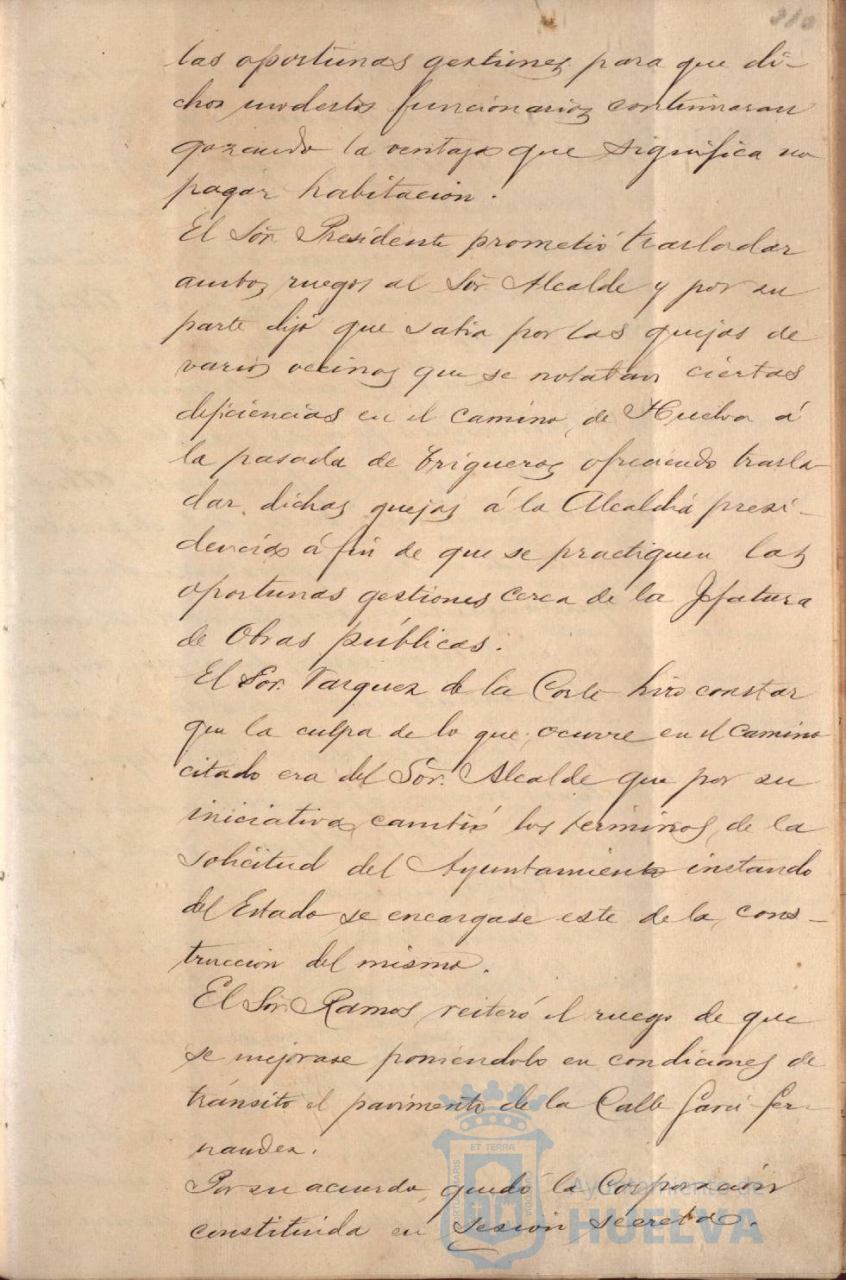 las oportunas gestiones para que di-
chos modestos funcionarios continuaran
gozando la ventaja que significa no
pagar habitacion.
El Sör. Presidente prometió trasladar
ambos ruegos al Sör. Alcalde y por su
parte dijo que sabia por las quejas de
varios vecinos que se notaban ciertas
deficiencias en el camino de Huelva á
la pasada de Trigueros ofreciendo trasla-
dar dichas quejas á la Alcaldia presi-
dencia á fin de que se practiquen las
oportunas gestiones cerca de la Jefatura
de Obras públicas.
El Sor. Vazquez de la Corte hizo constar
que la culpa de lo que ocurre en el camino
citado era del Sör. Alcalde que por su
iniciativa cambió los terminos de la
solicitud del Ayuntamiento instando
del Estado se encargase este de la cons-
truccion del mismo.
El Sör. Ramos reiteró el ruego de que
se mejorase poniendolo en condiciones de
tránsito el pavimento de la Calle Garci Fer-
nandez.
Por su acuerdo quedó la Corporación
constituida en Sesión secreta.
ET TERRA
Ayuntamiento de
HUELVA